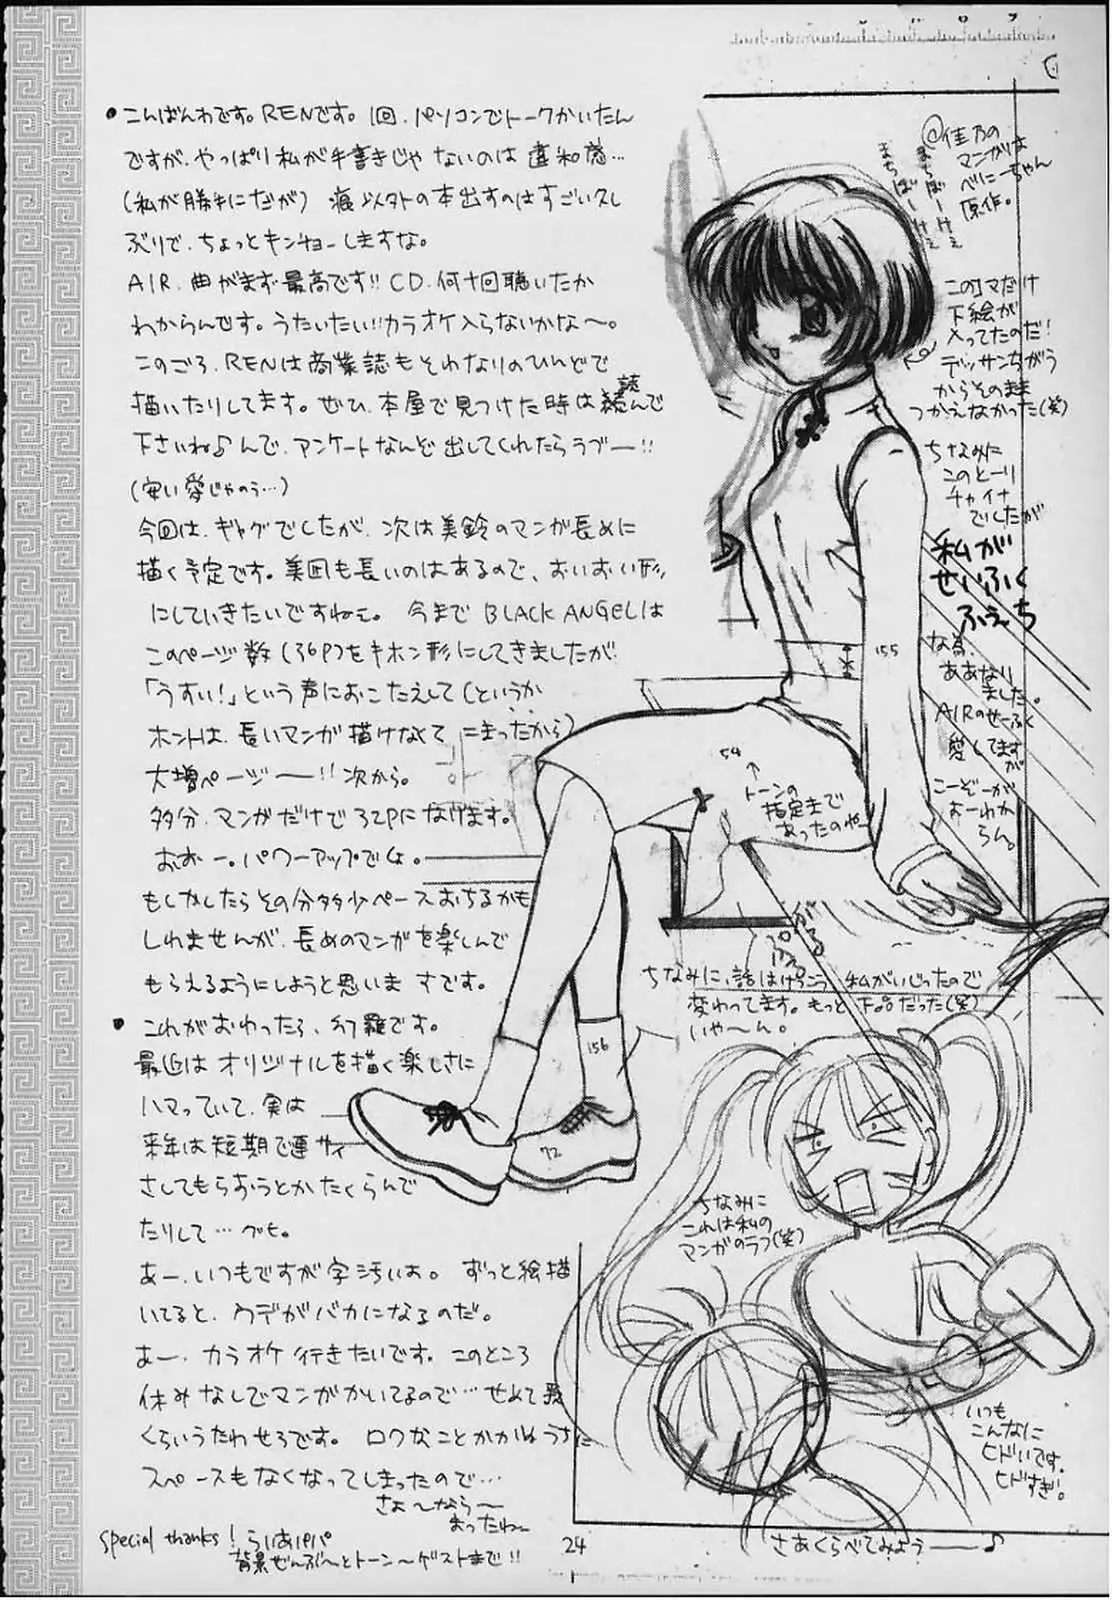 ・こんばんわです。RENです。1回、パソコンでトークかいたん
ですが、やっぱり私が手書きじゃないのは違和感…
(私が勝手にだが) 痕以外の本出すのはすごい久し
ぶりで、ちょっとキンチョーしますな。
AIR、曲がまず最高です!! CD、何十回聴いたか
わからんです。うたいたい!!カラオケ入らないかな〜。
このごろ、RENは商業誌もそれなりのひんどで
描いたりしてます。ぜひ、本屋で見つけた時は読んで
下さいね♪んで、アンケートなんぞ出してくれたらラブー!!
(安い愛じゃのう…)
今回は、ギャグでしたが、次は美鈴のマンガ長めに
描く予定です。美凪も長いのはあるので、おいおい形
にしていきたいですねぇ。 今まで BLACK ANGELは
このページ数(36P)をキホン形にしてきましたが
「うすい!」という声におこたえして(というか
ホントは、長いマンガ描けなくてこまったから)
大増ページ——!! 次から。
多分、マンガだけで32Pになげます。
おおー。パワーアップでな。
もしかしたらその分多少ペースおちるかも
しれませんが、長めのマンガを楽しんで
もらえるようにしようと思いますです。
・これがおわったら、幻羅です。
最近はオリジナルを描く楽しさに
ハマっていて、実は
来年は短期で連サイ
させてもらおうとかたくらんで
たりして…グヒ。
あー、いつもですが字汚いよ。ずっと絵描
いてると、ウデがバカになるのだ。
あー、カラオケ行きたいです。このところ
休みなしでマンガかいてるので…せめて
くらいうたわせろです。ロクなことかかないうちに
スペースもなくなってしまったので…
さよ〜なら〜
まったねー
special thanks! らいあパパ
背景ぜんぶ〜とトーン〜ゲストまで!!
24
@佳乃の
マンガは
べにーちゃん
原作。
まちぼーけぇ
まちぼーけぇ
このコマだけ
下絵が
入ってたのだ!
デッサンちがう
からそのまま
つかえなかった(笑)
ちなみに
このとーり
チャイナ
でしたが
私が
せいふく
ふぇち
な為、
ああなり
ました。
AIRのせーふく
愛してますが
こーぞーが
よーわか
らん。
155
54
トーンの
指定まで
あったのね
156
72
ちなみに、話はけっこう私がいじったので
変わってます。もっと下品だった(笑)
いや〜ん。
ちなみに
これは私の
マンガのラフ(笑)
いつも
こんなに
ヒドいです。
ヒドすぎ。
さあくらべてみよう——♪